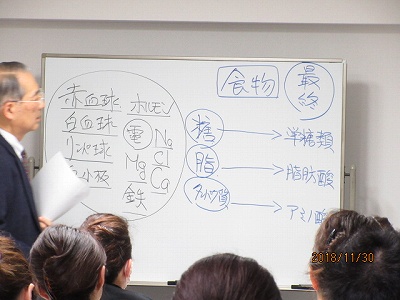 食物
最終
赤血球 ホルモン
白血球 電 Na
リンパ球 Mg Cl
小板 鉄 Ca
糖 → 単糖類
脂 → 脂肪酸
タンパク質 → アミノ酸
2018/11/30